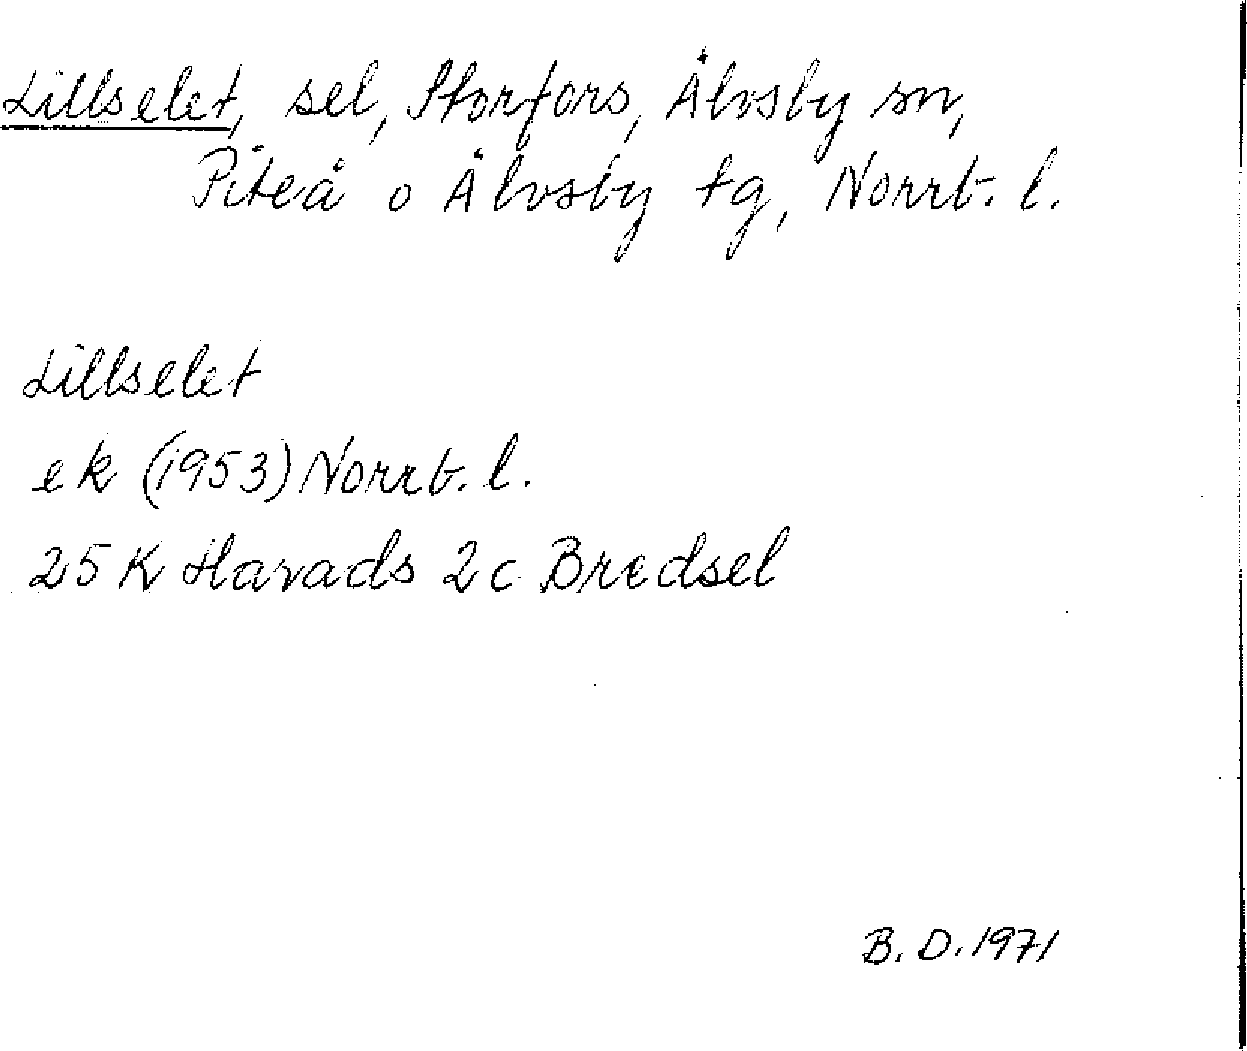 Lillselet, sel, Storfors, Älvsby sn,
Piteå o Älvsby tg, Norrb. l.
Lillselet
ek (1953) Norrb. l.
25 K Harads 2c Bredsel
B. D. 1971